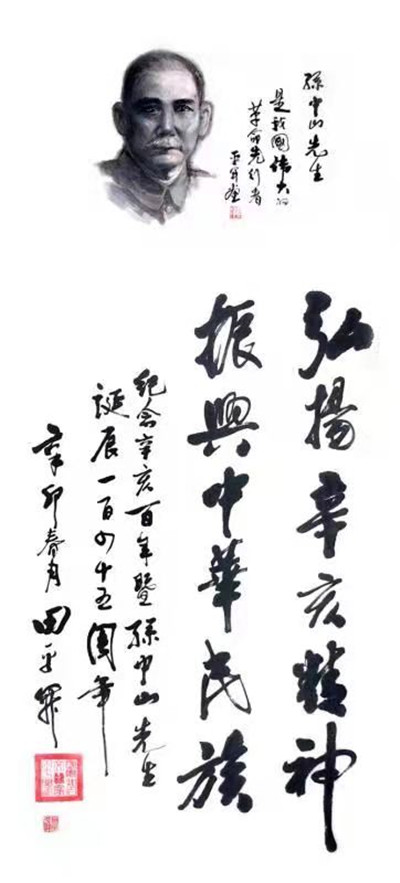 孫中山先生
是我國偉大的
革命先行者
弘揚辛亥精神
振興中華民族
紀念辛亥百年暨孫中山先生
誕辰一百四十五周年
辛卯春月 田平